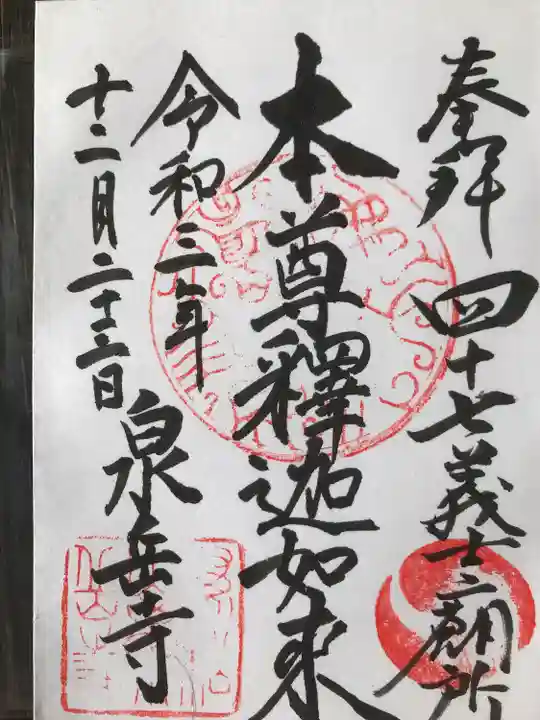 奉拝 四十七義士之廟所
本尊釋迦如来
令和三年
十二月二十三日
泉岳寺